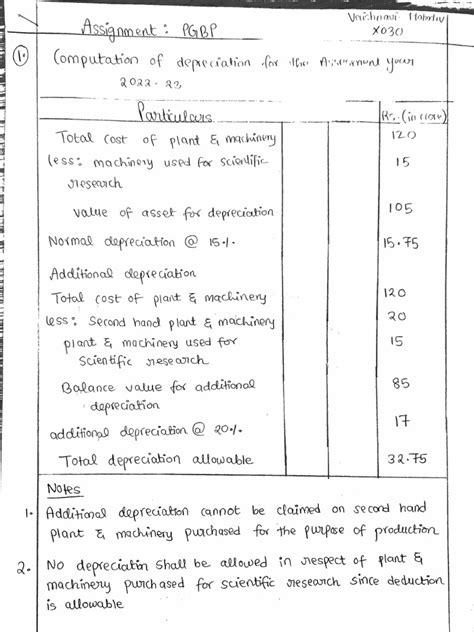 Assignment : PGBP
Vaishnavi
X030
1.
Computation of depreciation for the Assessment year
2022-23
Particulars
Rs. (in crore)
Total cost of plant & machinery
120
less: machinery used for scientific
15
research
value of asset for depreciation
105
Normal depreciation @ 15%
15.75
Additional depreciation
Total cost of plant & machinery
120
less: Second hand plant & machinery
20
plant & machinery used for
15
scientific research
Balance value for additional
85
depreciation
additional depreciation @ 20%
17
Total depreciation allowable
32.75
Notes
1. Additional depreciation cannot be claimed on second hand
plant & machinery purchased for the purpose of production
2. No depreciatin shall be allowed in respect of plant &
machinery purchased for scientific research since deduction
is allowable